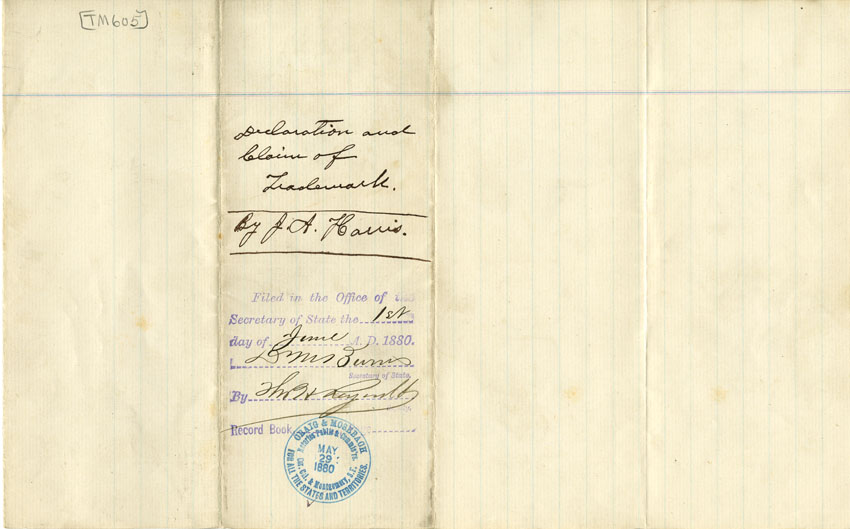 [TM605]
Declaration and
Claim of
Trademark.
By J. A. Harris.
Filed in the Office of the
Secretary of State the 1st
day of June A. D. 1880.
D M Burns
Secretary of State.
By
Record Book
CRAIG & MOSEBACH
NOTARIES PUBLIC & COMMRS.
MAY
29
1880
COR. CAL. & MONTGOMERY, S.F.
FOR ALL THE STATES AND TERRITORIES.